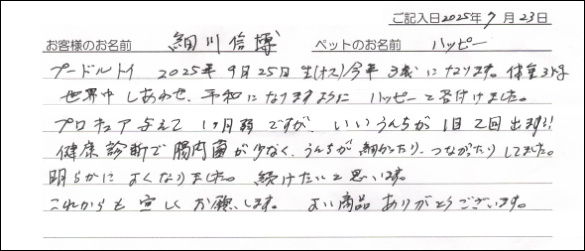 ご記入日2025年7月23日
お客様のお名前 細川信博 ペットのお名前 ハッピー
プードルトイ 2025年9月25日生(オス)/今年3歳になります。体重3kg
世界中しあわせ、平和になりますように ハッピーと名付けました。
プロキュア与えて 1ヶ月弱ですが、いいうんちが1日2回出ます!!
健康診断で腸内菌が少なく、うんちが細かったり、つながったりしてました。
明らかによくなりました。続けたいと思います。
これからも宜しくお願いします。よい商品ありがとうございます。